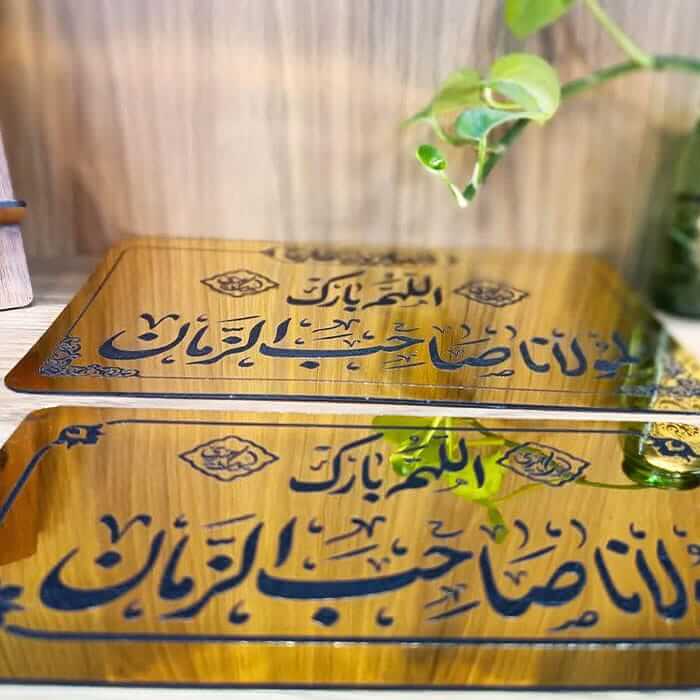 اللهم بارك
لمولانا صاحب الزمان
اللهم بارك
لمولانا صاحب الزمان